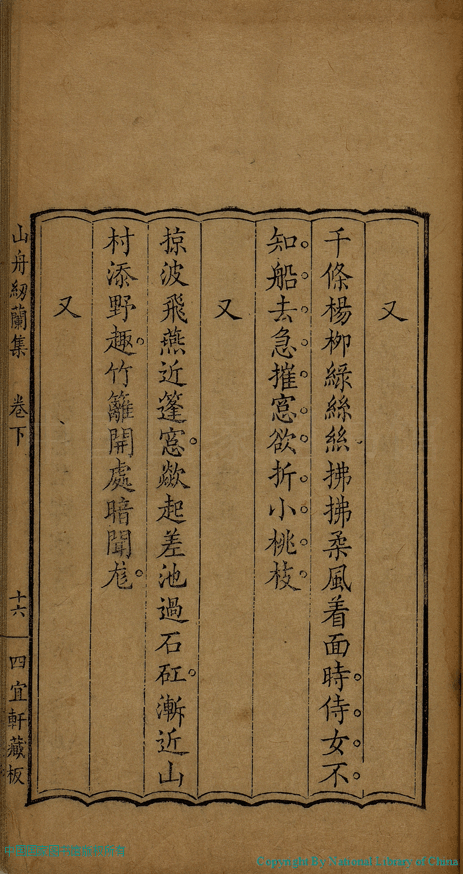 又
千條楊柳綠絲絲拂拂柔風着面時侍女不
知船去急摧窓欲折小桃枝
又
掠波飛燕近篷窓歘起差池過石矼漸近山
村添野趣竹籬開處暗聞尨
又
山舟紉蘭集 卷下 十六 四宜軒藏板
Copyright By National Library of China